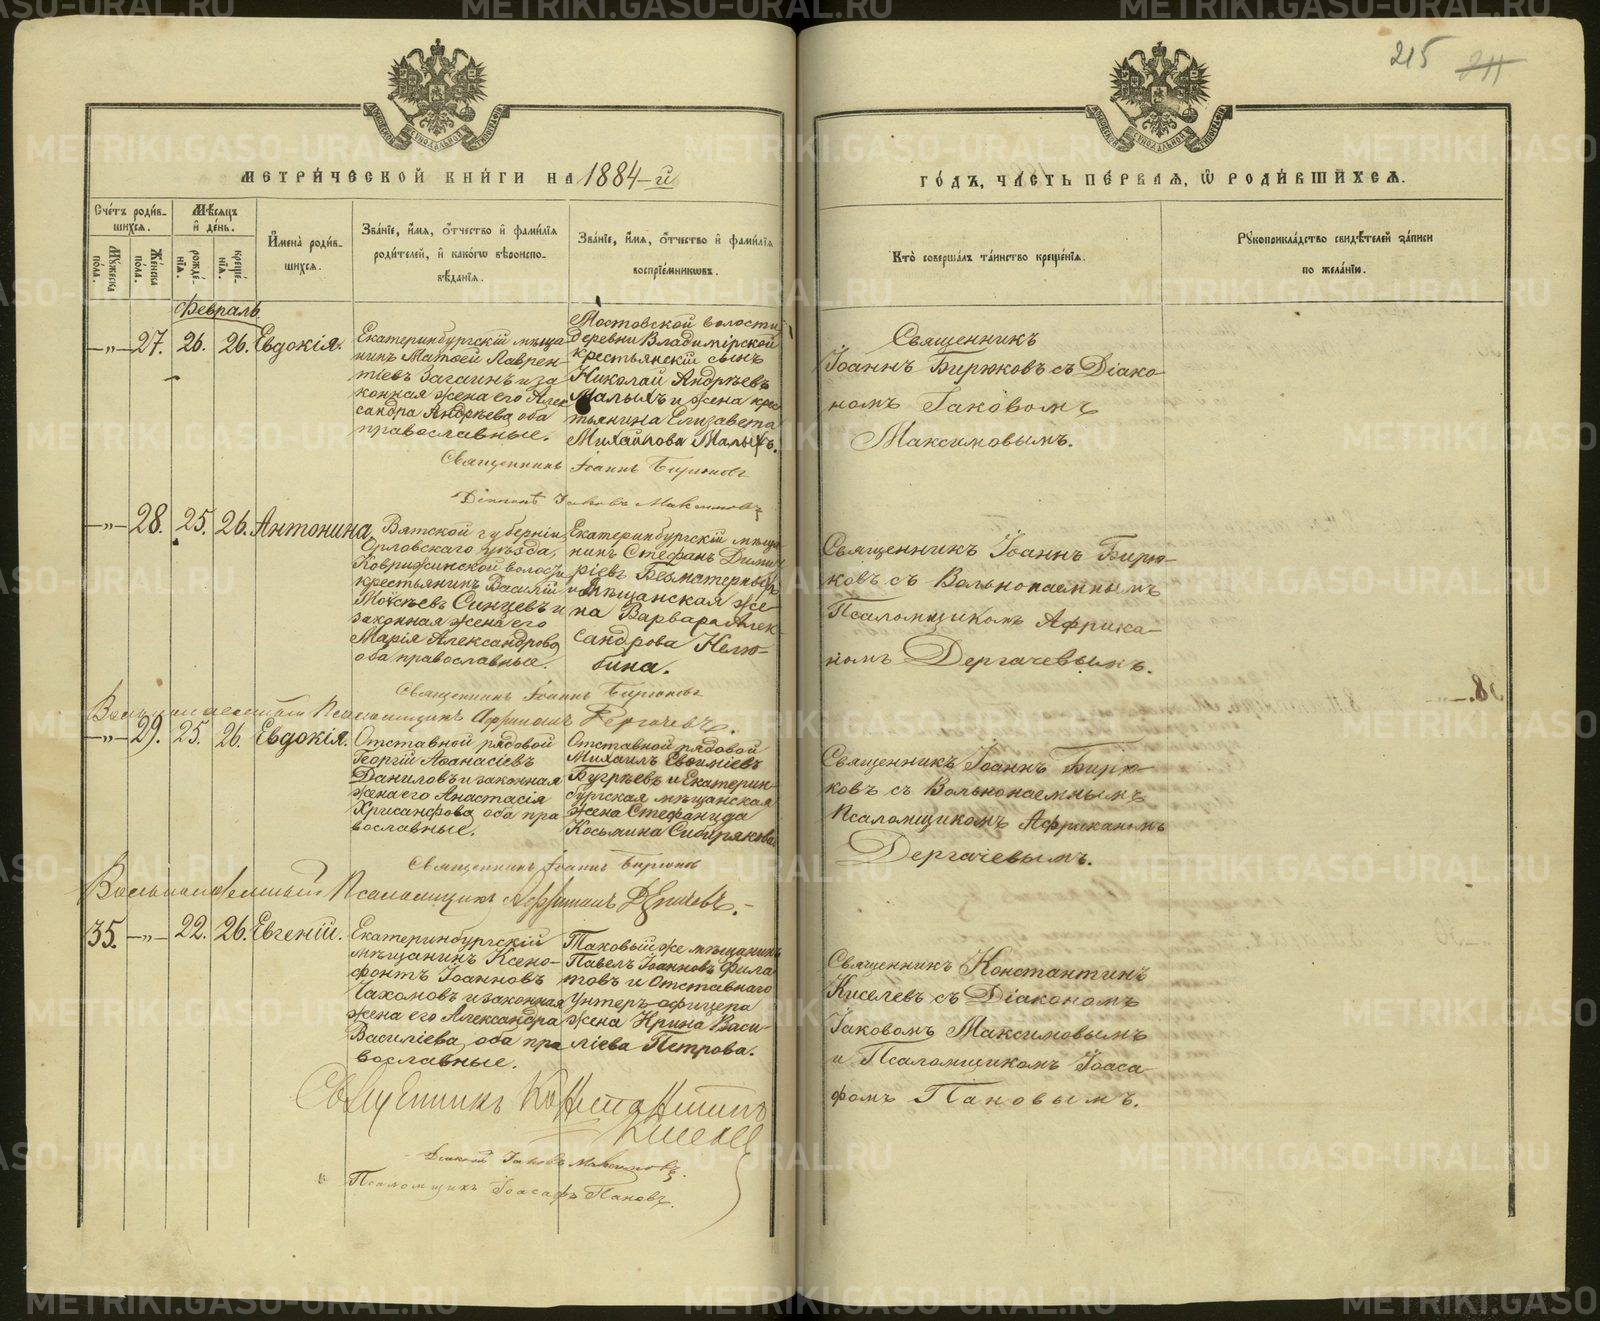 215 211
МЕТРИ́ЧЕСКОЙ КНИ́ГИ НА 1884-й
ГО́ДЪ, ЧА́СТЬ ПЕ́РВАЯ, Ѡ РОДИ́ВШИХСЯ.
Сче́тъ роди́в-
шихся.
Мѣ́сяцъ
и҆ де́нь.
И҆мена̀ роди́в-
шихся.
Зва́нїе, и҆́мя, ѻ҆́тчество и҆ фами́лїя
роди́телей, и҆ како́гѡ вѣроиспо-
вѣ́данїя.
Зва́нїе, и҆́мя, ѻ҆́тчество и҆ фами́лїя
воспрїе́мникѡвъ.
Кто̀ соверша́лъ та́инство креще́нїя.
Рꙋкоприкла́дство свидѣ́телей за́писи
по жела́нїю.
Мꙋ́жеска
по́ла.
Же́нска
по́ла.
рожде́-
нїя.
креще́-
нїя.
Февраль
—„— 27. 26. 26. Евдокія.
Екатеринбургскій мѣща-
нинъ Матѳей Лаврен-
тіевъ Загаинъ и за
конная жена его Алек
сандра Андрѣева, оба
православные.
Мостовской волости
деревни Владимірской
крестьянскій сынъ
Николай Андрѣевъ
Малыхъ и жена крес
тьянина Елизавета
Михайлова Малыхъ.
Священникъ
Іоаннъ Бирюковъ съ Діако-
номъ Іаковомъ
Максимовымъ.
Священникъ Іоаннъ Бирюковъ
Діаконъ Іаковъ Максимовъ
—„— 28. 25. 26. Антонина
Вятской губерніи,
Орловскаго уѣзда,
Коврижинской волости
крестьянинъ Василій
Моѵсеѣвъ Синцевъ и
законная жена его
Марія Александрова
оба православные.
Екатеринбургскій мѣща
нинъ Стефанъ Дими
ріевъ Безматерныхъ
и мѣщанская же-
на Варвара Алек-
сандрова Нелю-
бина.
Священникъ Іоаннъ Бирю-
ковъ съ Вольнонаемнымъ
Псаломщикомъ Африка-
номъ Дергачевымъ.
Священникъ Іоаннъ Бирюковъ
Вольнонаемный Псаломщикъ Африканъ Дергачевъ.
—„— 29. 25. 26. Евдокія.
Отставной рядовой
Георгій Аѳанасіевъ
Даниловъ и законная
жена его Анастасія
Хрисанфова, оба пра
вославные.
Отставной рядовой
Михаилъ Евѳиміевъ
Бугрѣевъ и Екатерин-
бургская мѣщанская
жена Стефанида
Косьмина Сибирякова.
Священникъ Іоаннъ Бирю-
ковъ съ Вольнонаемнымъ
Псаломщикомъ Африканомъ
Дергачевымъ.
Священникъ Іоаннъ Бирюковъ
Вольнонаемный Псаломщикъ Африканъ Дергачевъ.
35. —„— 22. 26. Евгеній.
Екатеринбургскій
мѣщанинъ Ксено-
фонтъ Іоанновъ
Чахомовъ и законная
жена его Александра
Василіева, оба пра
вославные.
Таковый же мѣщанинъ
Павелъ Іоанновъ Фила
товъ и Отставнаго
унтеръ-офицера
жена Ирина Васи-
ліева Петрова.
Священникъ Константинъ
Киселевъ съ Діакономъ
Іаковомъ Максимовымъ
и Псаломщикомъ Іоаса-
фомъ Пановымъ.
Священникъ Константинъ
Киселевъ
Діаконъ Іаковъ Максимовъ.
Псаломщикъ Іоасафъ Пановъ.
METRIKI.GASO-URAL.RU